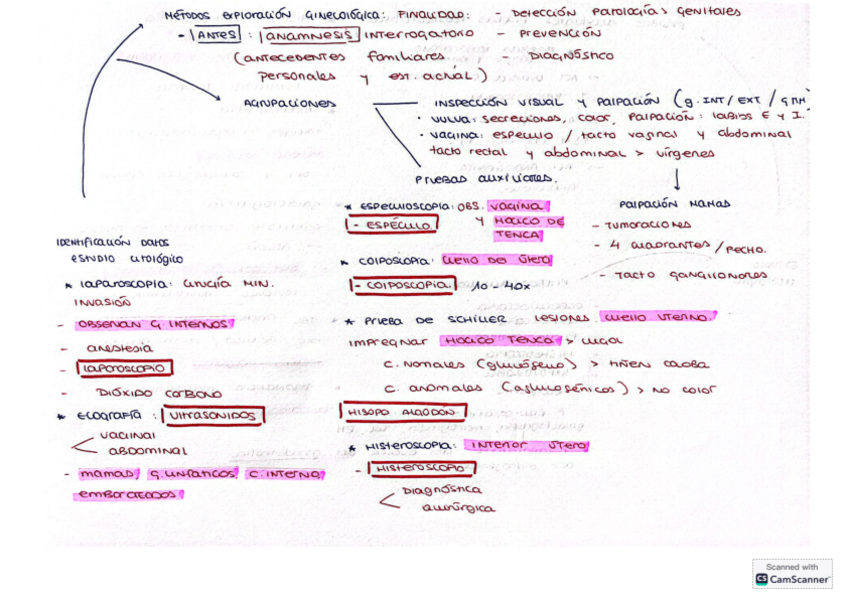 MÉTODOS EXPLORACIÓN GINECOLÓGICA: FINALIDAD: - DETECCIÓN PATOLOGÍAS GENITALES
- ANTES: ANAMNESIS INTERROGATORIO - PREVENCIÓN
(ANTECEDENTES FAMILIARES - DIAGNÓSTICO
PERSONALES Y EST. ACTUAL)
AGRUPACIONES
INSPECCIÓN VISUAL Y PALPACIÓN (G. INT / EXT /
• VULVA: SECRECIONES, COLOR, PALPACIÓN: LABIOS E Y I
• VAGINA: ESPÉCULO / TACTO VAGINAL Y ABDOMINAL
TACTO RECTAL Y ABDOMINAL > VÍRGENES
PRUEBAS AUXILIARES.
PALPACIÓN MAMAS
- TUMORACIONES
- 4 CUADRANTES / PECHO.
- TACTO GANGLIONARES
* ESPECULOSCOPIA: OBS. VAGINA
- ESPÉCULO Y HOCICO DE
TENCA
* COLPOSCOPIA: CUELLO DEL ÚTERO
- COLPOSCOPIA 10-40x
* PRUEBA DE SCHILLER LESIONES CUELLO UTERINO.
IMPREGNAR HOCICO TENCA > LUGOL
C. NORMALES (GLUCÓGENO) > TIÑEN CAOBA
C. ANORMALES (AGLUCOGÉNICOS) > NO COLOR
HISOPO ALGODÓN
* HISTEROSCOPIA: INTERIOR ÚTERO
- HISTEROSCOPIO
< DIAGNÓSTICA
QUIRÚRGICA
IDENTIFICACIÓN DATOS
ESTUDIO CITOLÓGICO
* LAPAROSCOPIA: CIRUGÍA MIN.
INVASIÓN
- OBSERVAN G. INTERNOS
- ANESTESIA
- LAPAROSCOPIO
- DIÓXIDO CARBONO
* ECOGRAFÍA: ULTRASONIDOS
< VAGINAL
ABDOMINAL
- MAMAS, G. LINFÁTICOS, C. INTERNO,
EMBARAZADAS
Scanned with
CS CamScanner